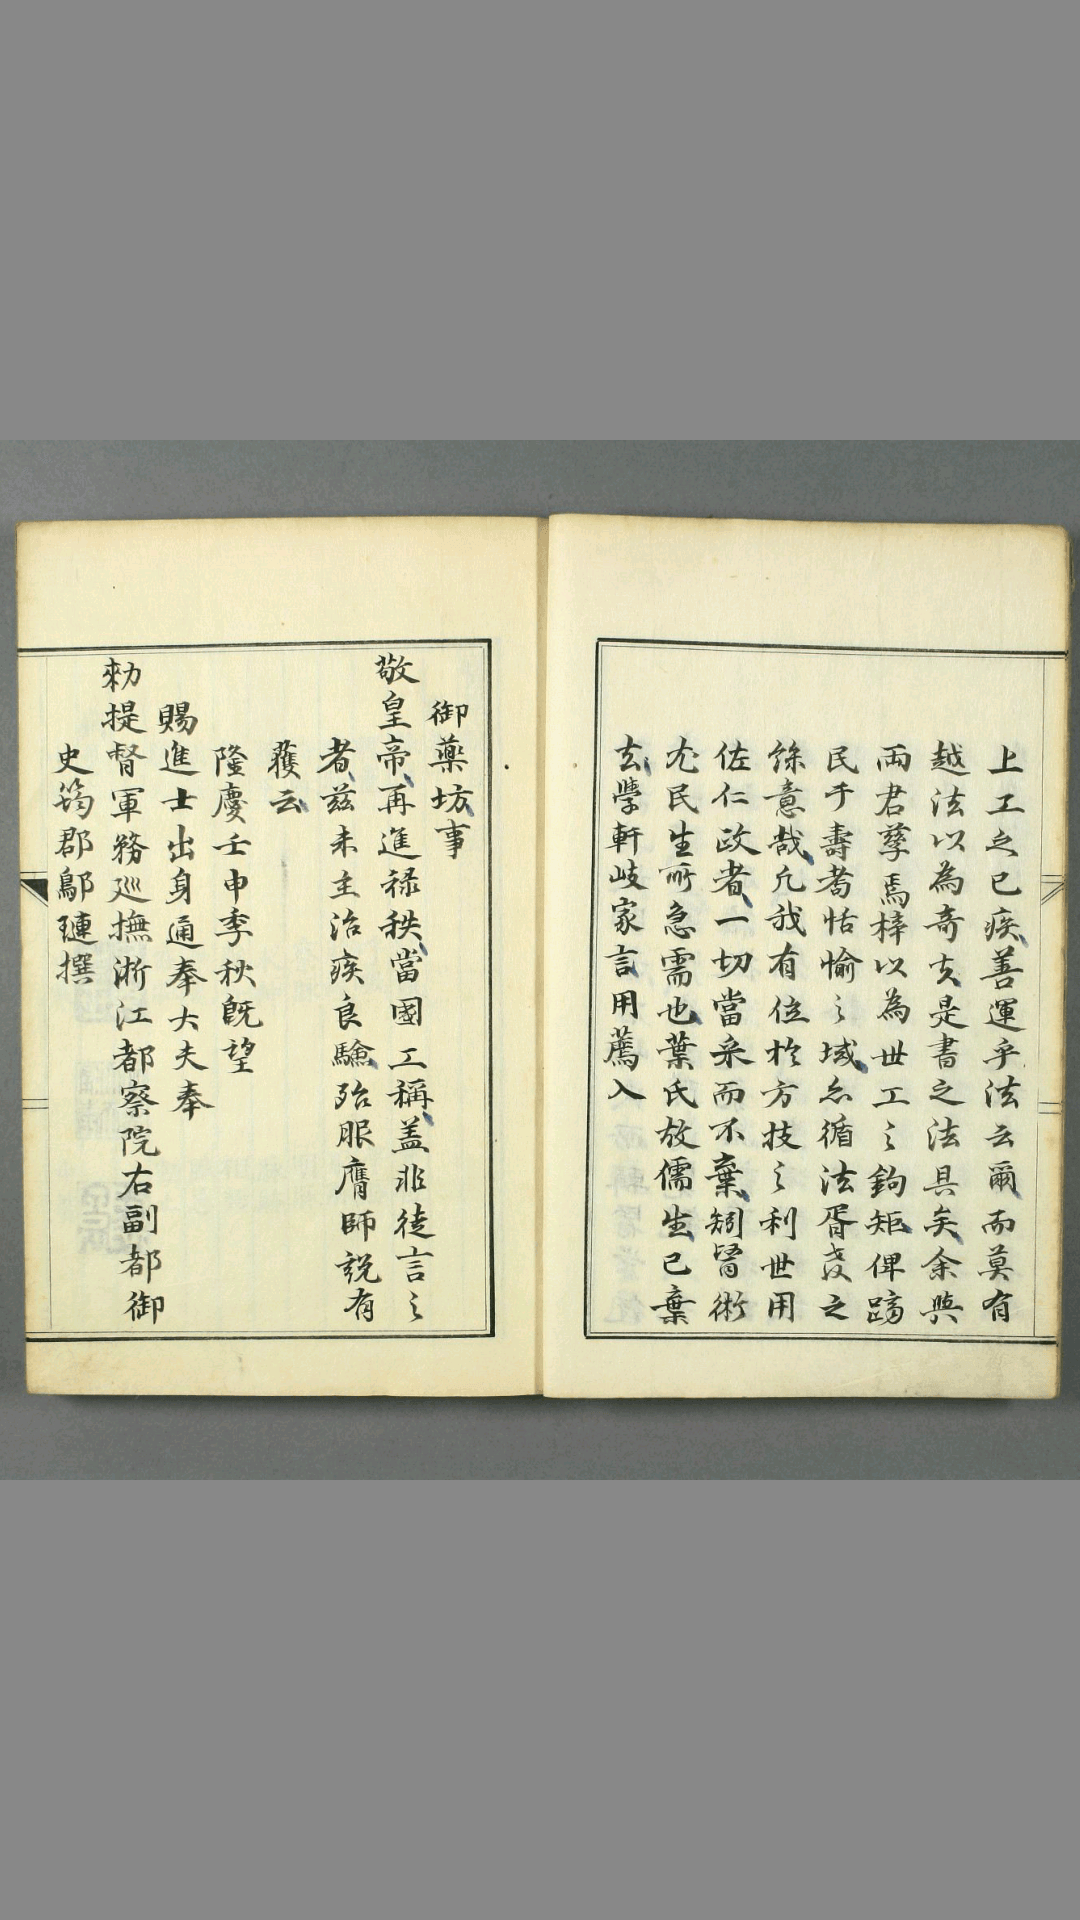 上工之已疾善運乎法云爾而莫有
越法以為奇玄是書之法具矣余與
兩君孳焉梓以為世工之鉤矩俾躋
民于壽耇恬愉之域亦循法胥之
餘意哉凡我有位於方技之利世用
佐仁政者一切當采而不棄矧醫術
尤民生所急需也葉氏故儒生已棄
去學軒岐家言用薦入
御藥坊事
敬皇帝再進祿秩當國工稱蓋非徒言之
者茲未主治疾良驗殆服膺師說有
獲云
隆慶壬申季秋既望
賜進士出身通奉大夫奉
勑提督軍務巡撫浙江都察院右副都御
史筠郡鄔璉撰